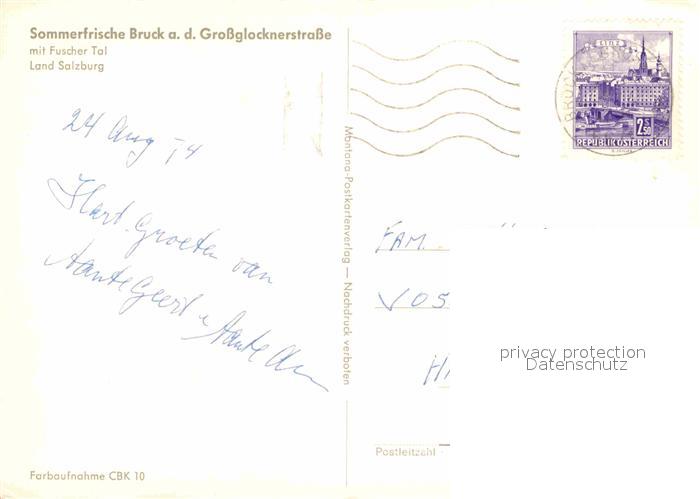 Sommerfrische Bruck a. d. Großglocknerstraße
mit Fuscher Tal
Land Salzburg
LINZ
2.50
S
REPUBLIK ÖSTERREICH
24 Aug
Hart. Groeten van
tante Geert u tante
Montana-Postkartenverlag — Nachdruck verboten
FAM.
VOS
privacy protection
Datenschutz
Postleitzahl
Farbaufnahme CBK 10